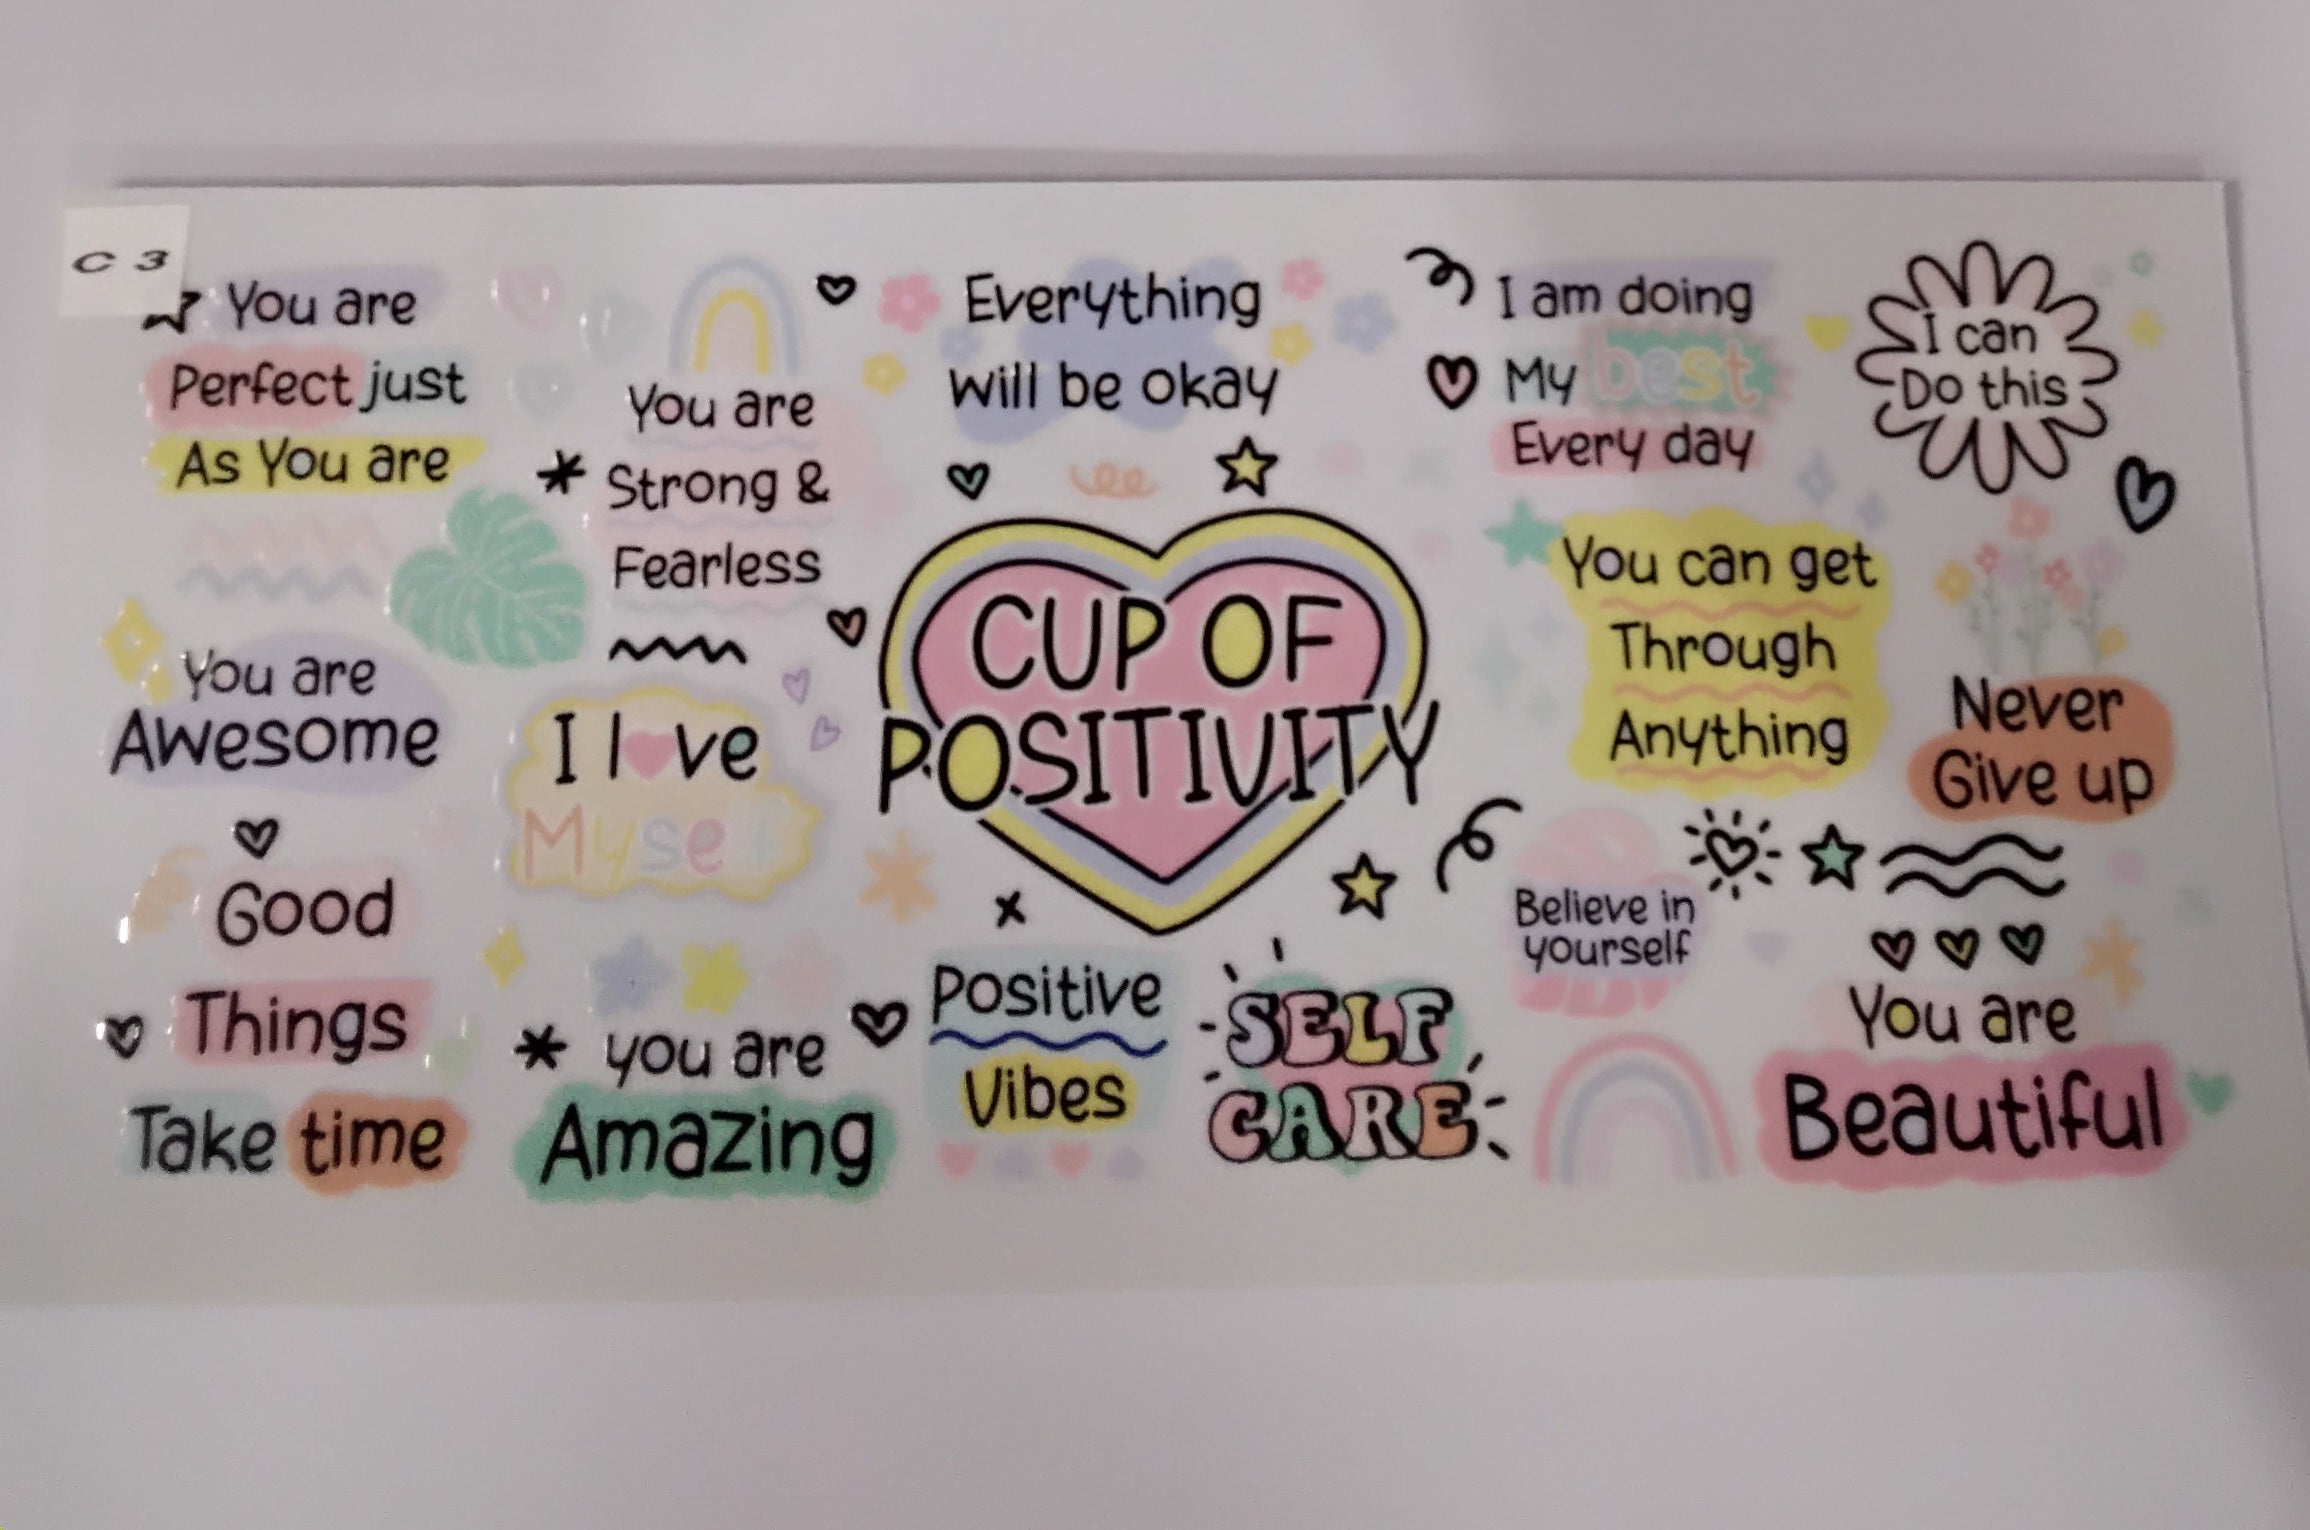 C 3
You are
Perfect just
As You are
You are
Strong &
Fearless
Everything
will be okay
I am doing
My best
Every day
I can
Do this
You are
Awesome
I love
Myself
CUP OF
POSITIVITY
You can get
Through
Anything
Never
Give up
Good
Things
Take time
you are
Amazing
Positive
Vibes
SELF
CARE
Believe in
yourself
You are
Beautiful